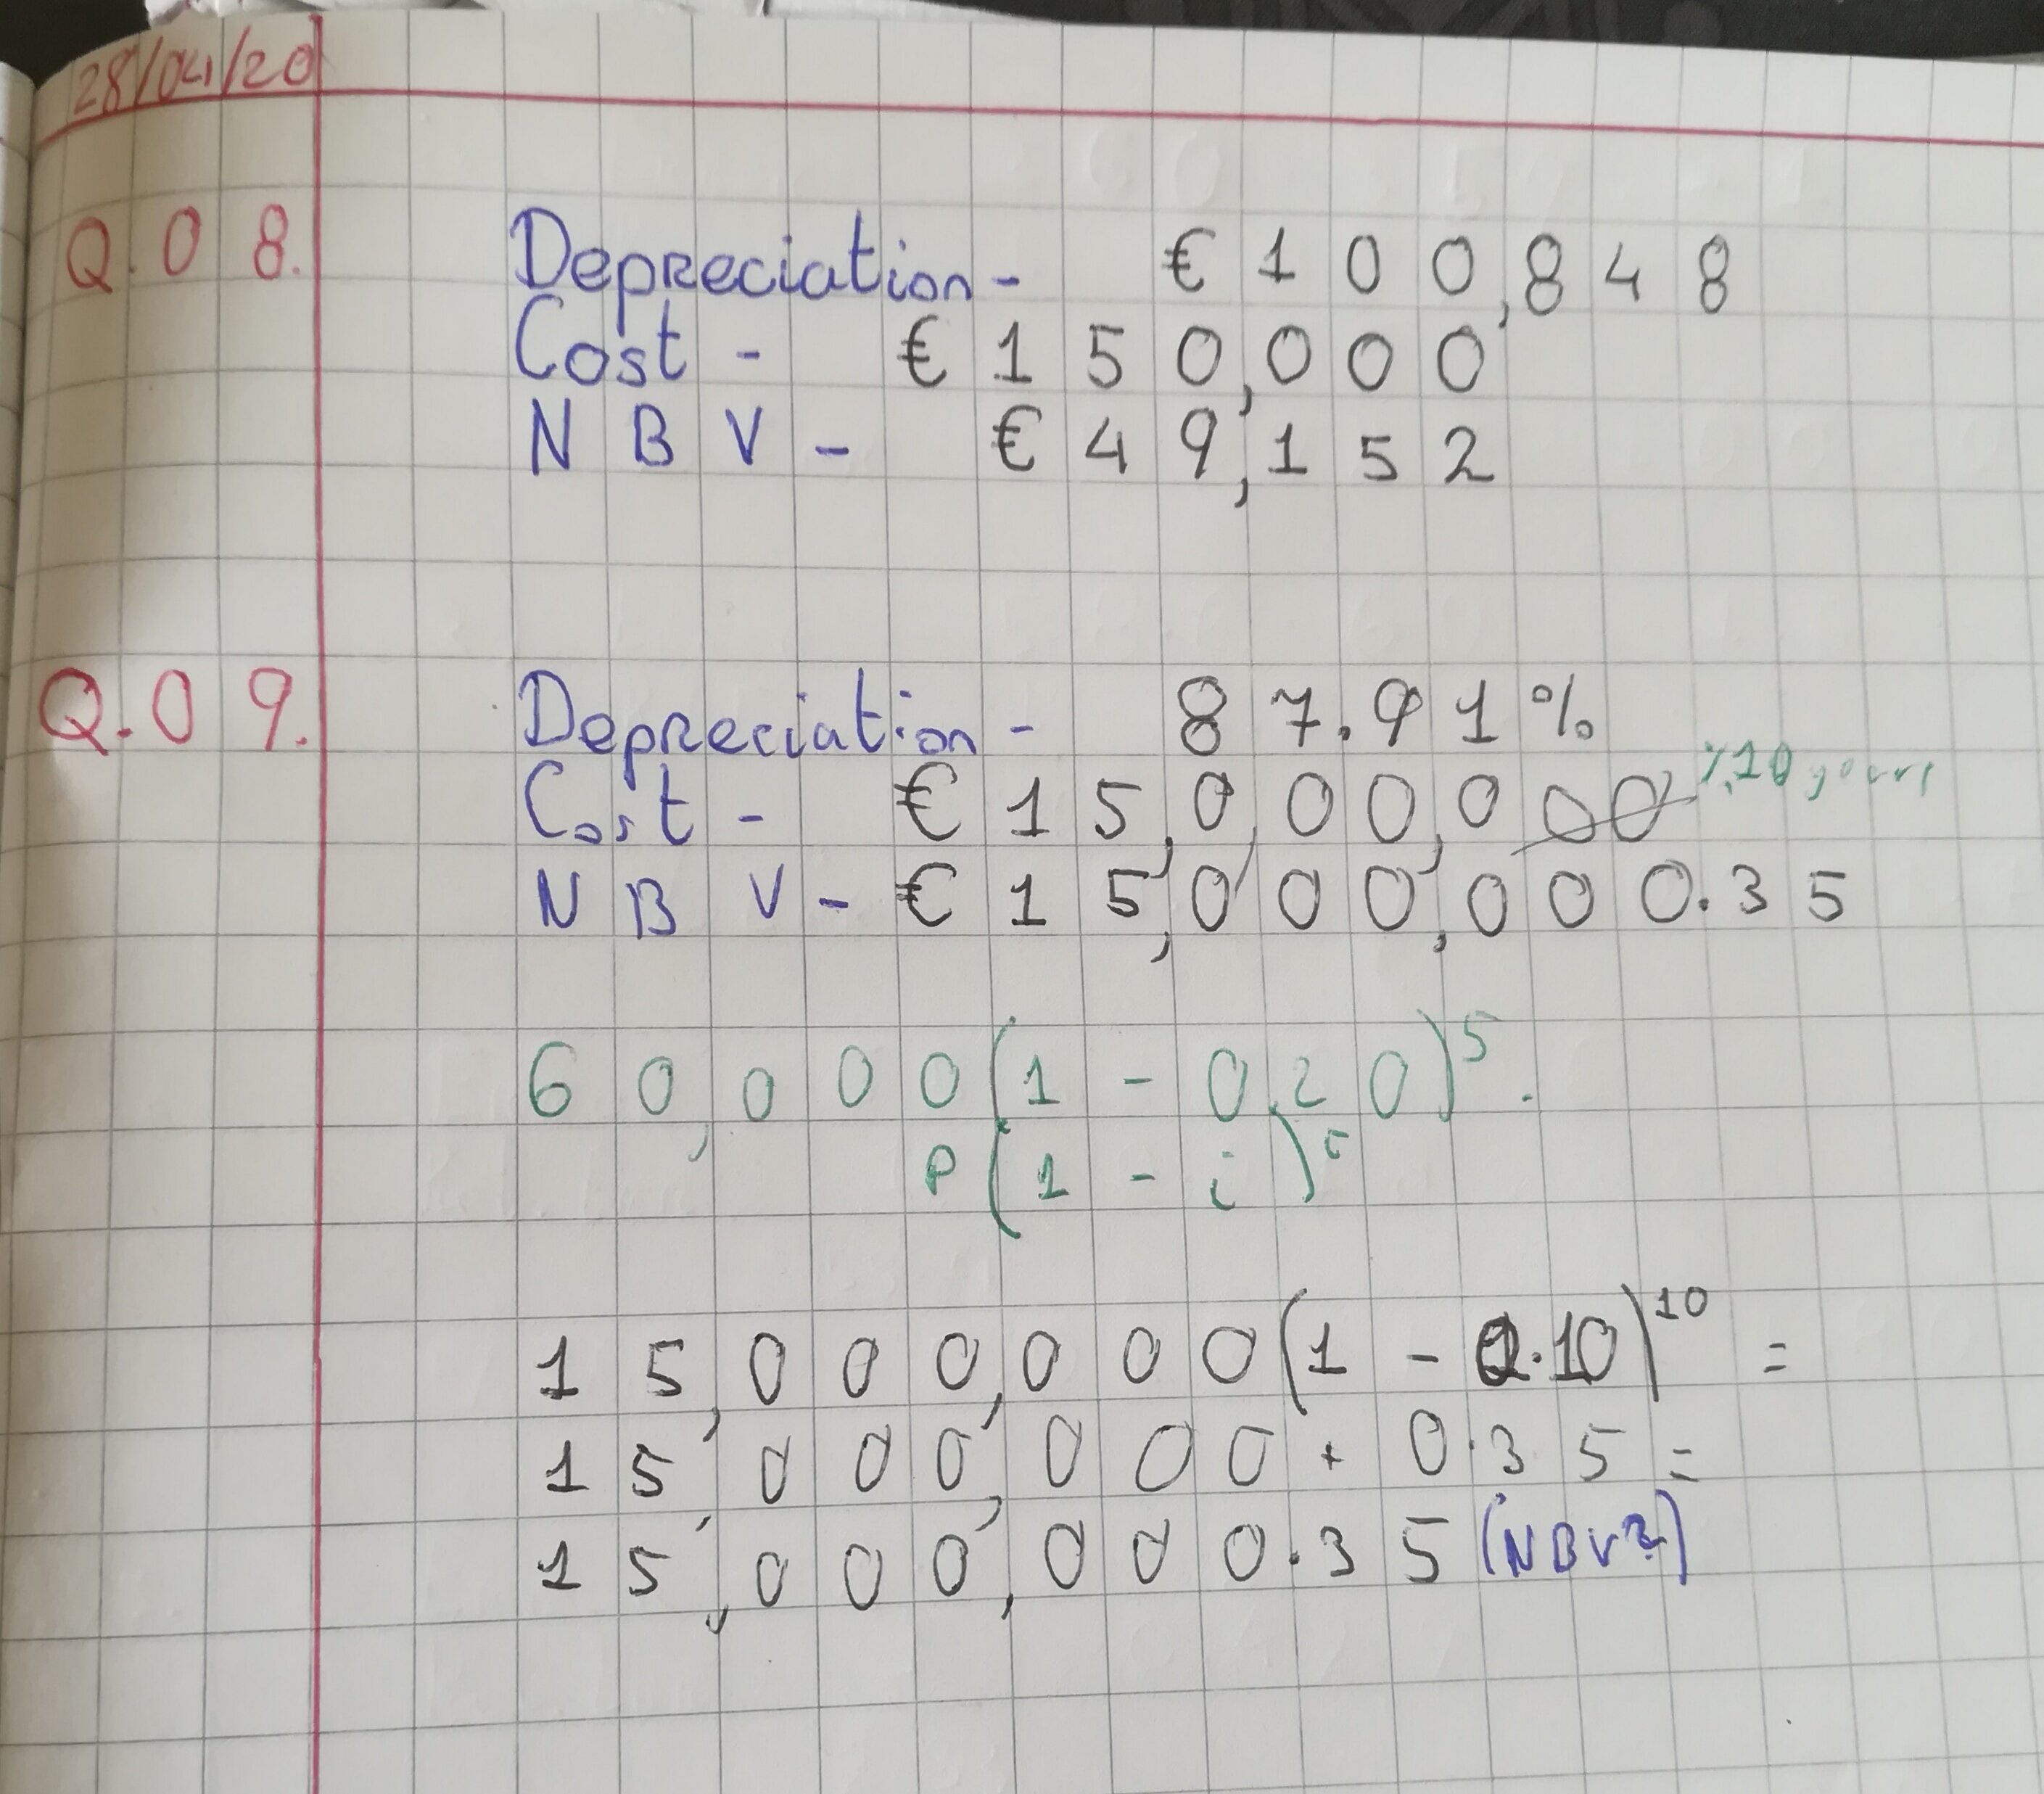 28/04/20
Q.08. Depreciation - €100,848
Cost - €150,000
NBV - €49,152
Q.09. Depreciation - 87.91%
Cost - €15,000,000 % 10 years
NBV - €15,000,000.35
60,000(1 - 0.20)⁵.
P(1 - i)ᵗ
15,000,000(1 - 0.10)¹⁰ =
15,000,000 + 0.35 =
15,000,000.35 (NBV?)